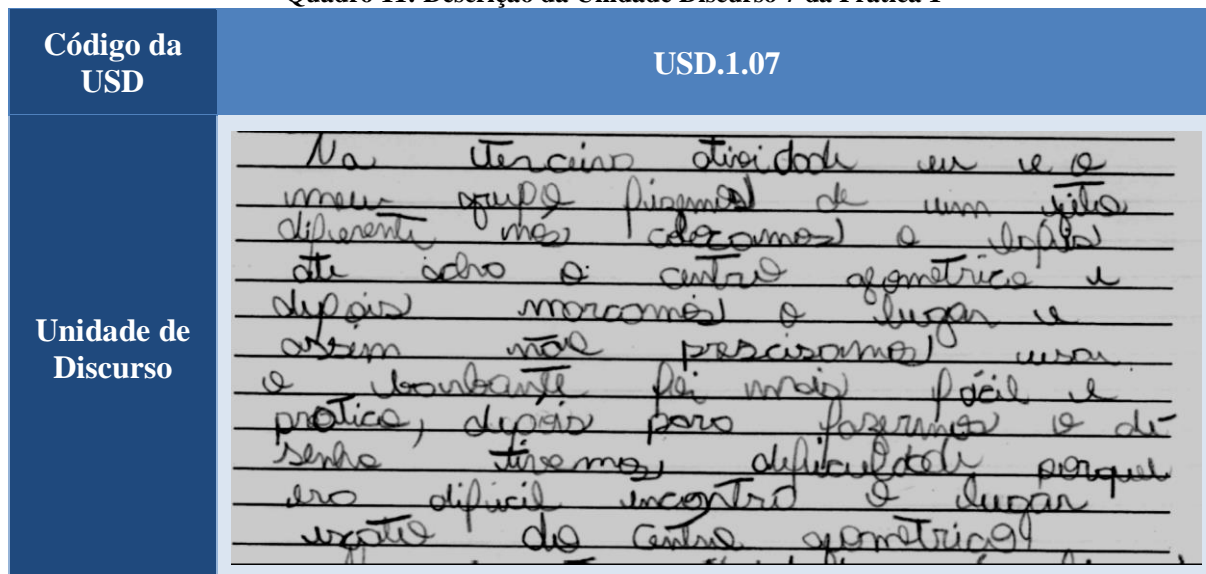 Quadro 11: Descrição da Unidade Discurso 7 da Prática 1
Código da USD
USD.1.07
Unidade de Discurso
Na terceira atividade eu e o
meu grupo fizemos de um jeito
diferente nós colocamos o lápis
ate acha o centro geometrico e
depois marcamos o lugar e
assim não prescisamos usar
o barbante foi mais fácil e
pratico, depois para fazermos o de
senho tivemos dificuldade porque
era dificil encontra o lugar
exato do centro geometrico